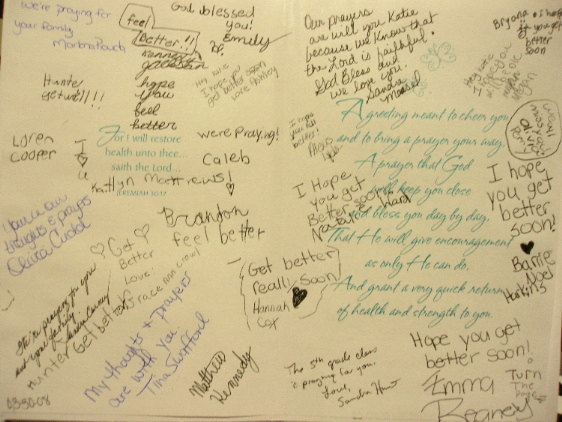 we're praying for
your family
feel
Better!!
God blessed
you!
Emily
hope
you
feel
better
Our prayers
are with you Katie
because we know that
the Lord is faithful.
God Bless and
we love you.
Sandra
Bryana
I hope
you get
better
soon
Hunter
get well!!!
Loren
Cooper
For I will restore
health unto thee...
saith the Lord...
JEREMIAH 30:17
we're Praying!
Caleb
Kaitlyn Matthews!
I hope
you get
better soon
Love,
I hope
you feel
better!
A greeting meant to cheer you
and to bring a prayer your way,
A prayer that God
will keep you close
and bless you day by day,
That He will give encouragement
as only He can do,
And grant a very quick return
of health and strength to you
I Hope
you get
Better soon
I hope
you get
better
soon!
Barrie
Noel
Hankins
You're in our
thoughts & prayers
Brandon
feel better
Get
Better
Love!
Grace
Get better
really soon
Hannah
Cox
We're praying for you
and your family.
Hunter Get better
My thoughts & prayers
are with you
Tina Stafford
Matthew
Kennedy
The 5th grade class
is praying for you.
Love,
Sandra Hunt
Hope you get
better soon!
Emma
Reaney
Turn
The page
03-30-08